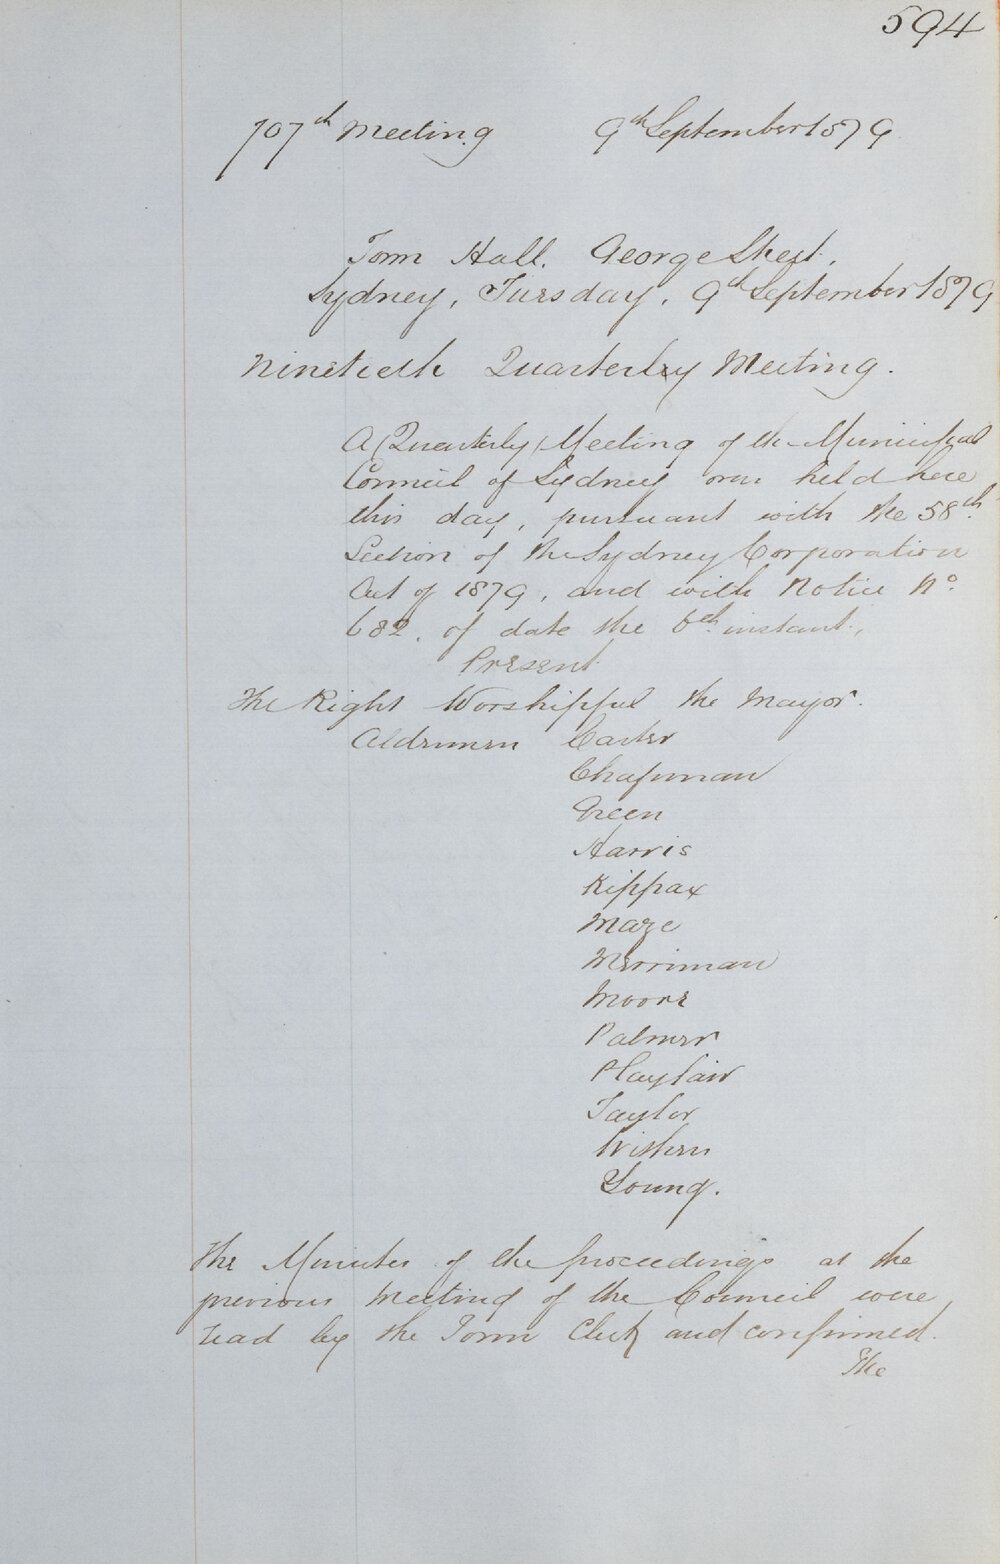 594
707th Meeting 9th September 1879
Town Hall. George Street.
Sydney, Tuesday, 9th September 1879
Ninetieth Quarterley Meeting.
A Quarterly Meeting of the Municipal
Council of Sydney was held here
this day, pursuant with the 58th
Section of the Sydney Corporation
Act of 1879, and with Notice No.
682. of date the 6th instant.,
Present
The Right Worshipful the Mayor.
Aldermen Carter
Chapman
Green
Harris
Kippax
Maze
Merriman
Moore
Palmer
Playfair
Taylor
Withers
Young.
The Minutes of the proceedings at the
previous Meeting of the Council were
read by the Town Clerk and confirmed.
The